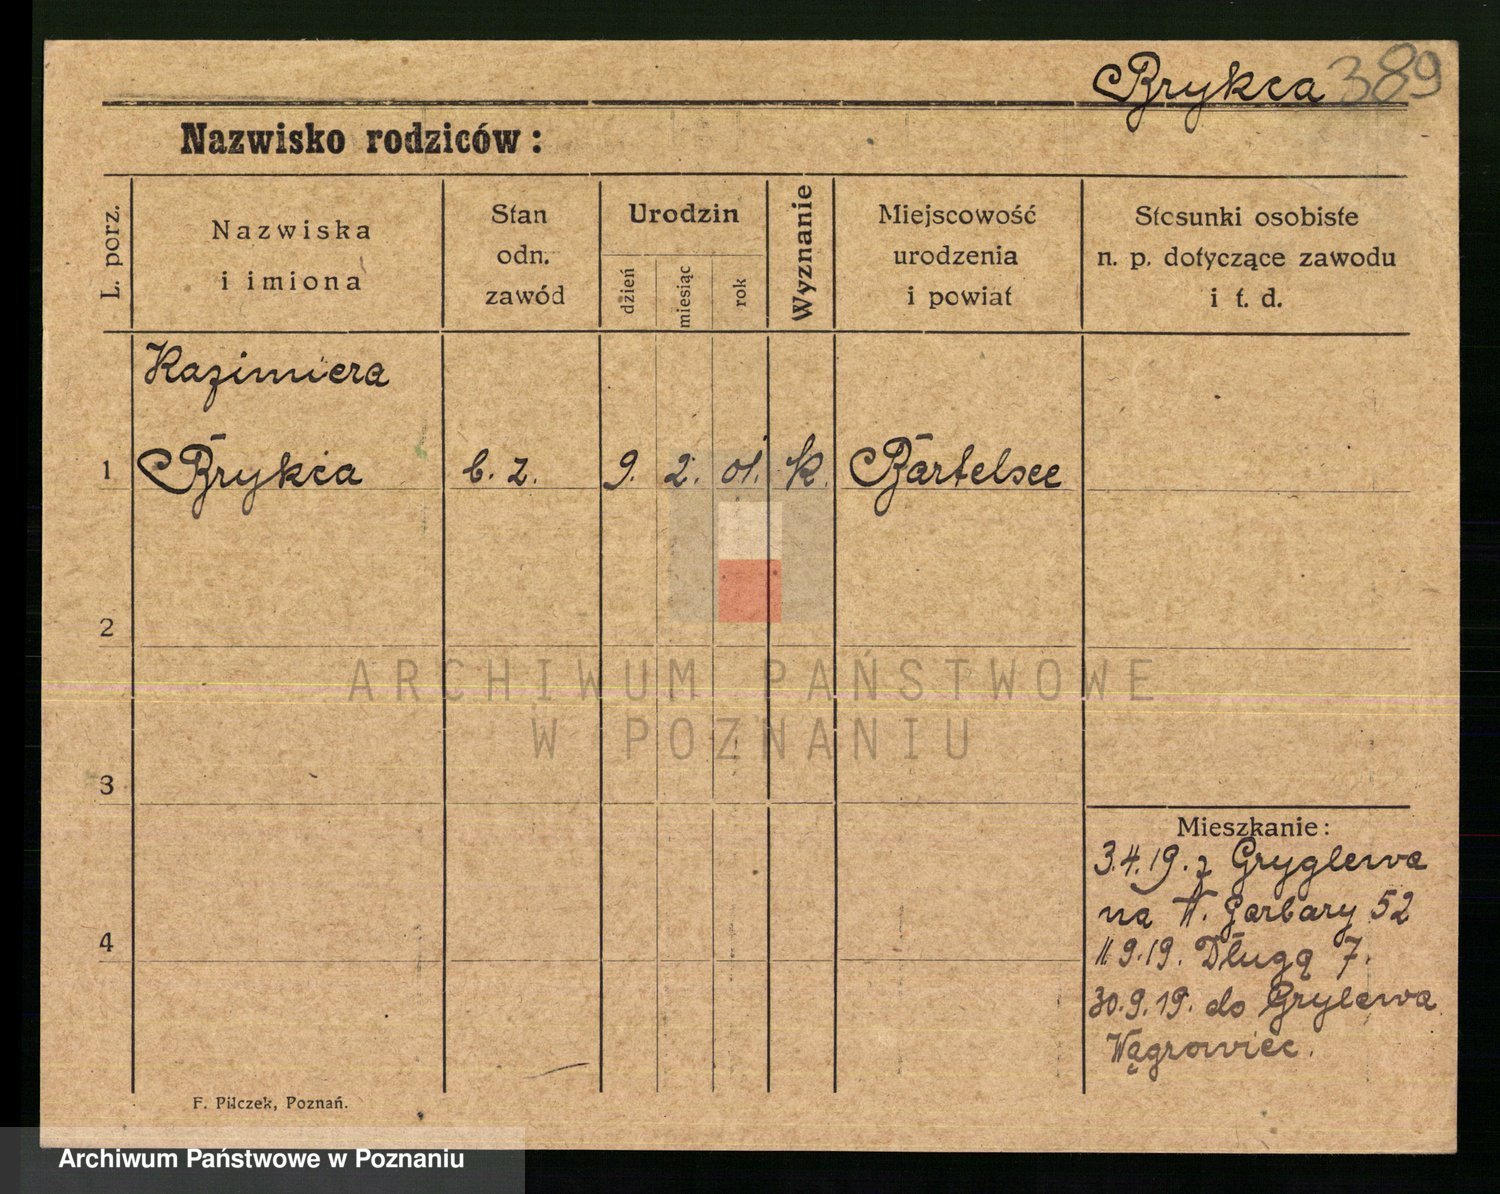 Brykca 389
Nazwisko rodziców:
L. porz.
Nazwiska
i imiona
Stan
odn.
zawód
Urodzin
dzień
miesiąc
rok
Wyznanie
Miejscowość
urodzenia
i powiat
Stosunki osobiste
n. p. dotyczące zawodu
i t. d.
Kazimiera
1 Brykca b. z. 9. 2. 01. k. Bartelsee
2
ARCHIWUM PAŃSTWOWE
W POZNANIU
3
Mieszkanie:
3.4.19. z Gryglewa
na W. Garbary 52
11.9.19. Długą 7.
4
30.9.19. do Grylewa
Wągrowiec.
F. Pilczek, Poznań.
Archiwum Państwowe w Poznaniu